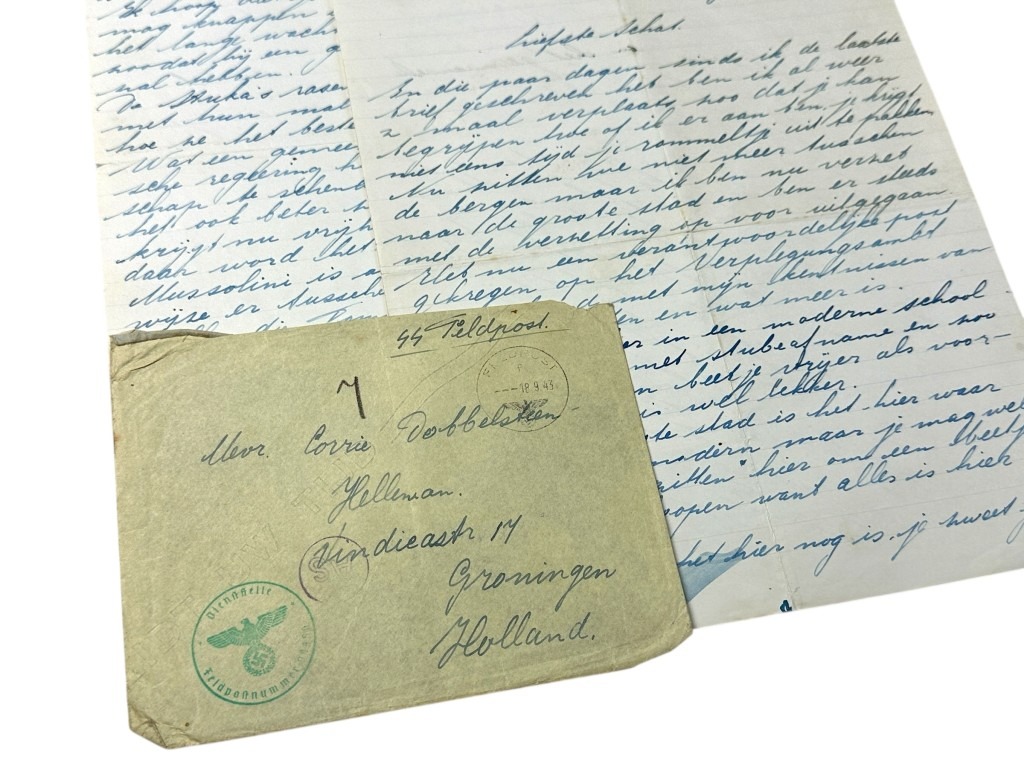 Ik hoop
mag knappen
het lange wacht
noodat hij een g
nal hebben.
De Stuka's rasen
met hun mal
hoe ne het beste
Wat een gemeen
sche regeering h
schap te schenb
het ook beter
krijgt nu vrijh
daar word het
Mussolini is a
wijze er tussche
Liefste Schat.
In die paar dagen sinds ik de laatste
brief geschreven heb ben ik al weer
2 maal verplaatst noo dat je kan
begrijpen hoe of ik er aan ben, je krijgt
niet eens tijd je rommeltje uit te pakken
Nu zitten we niet meer tusschen
de bergen maar ik ben nu vernet
naar de groote stad en ben er steeds
met de vernetting op voor uitgegaan
Heb nu een verantwoordelijke post
gekregen op het Verplegungsambt
met mijn kentnissen van
en en wat meer is.
er in een moderne school
met stubeafname en noo
n beetje vrijer als voor-
is well lekker.
te stad is het hier waar
modern maar je mag wel
zitten" hier om een beetje
open want alles is hier
het hier nog is. je zweet
SS Feldpost.
FELDPOST
---18.9.43
7
Mevr. Corrie Dobbelsteen-
Helleman.
Vindicastr 17
Groningen
Holland.
Dienststelle
Feldpostnummer